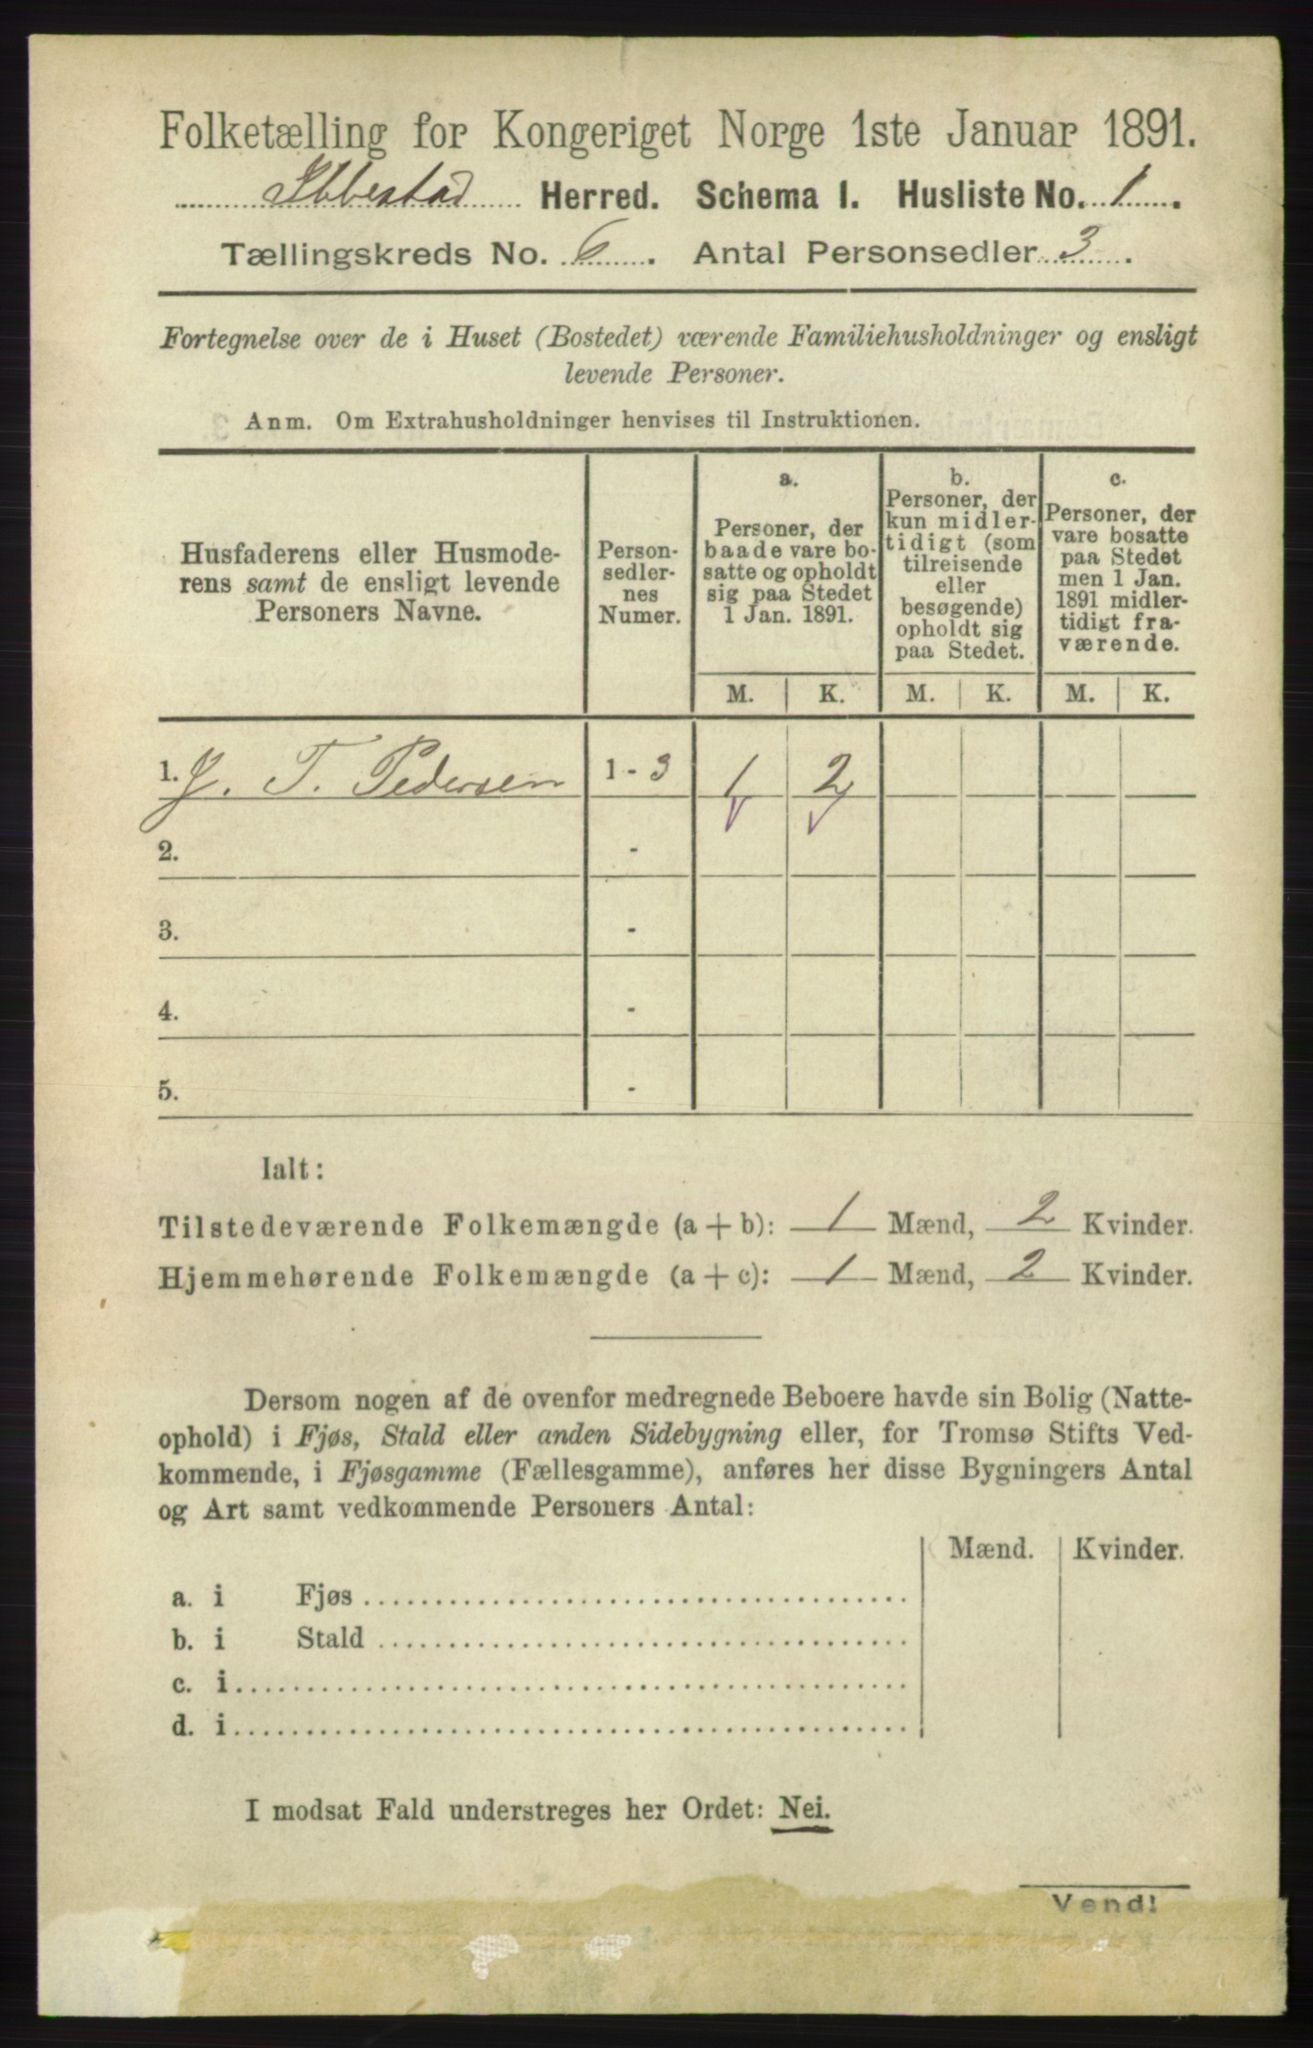 Folketælling for Kongeriget Norge 1ste Januar 1891.
Ibbestad Herred. Schema I. Husliste No. 1.
Tællingskreds No. 6. Antal Personsedler 3.
Fortegnelse over de i Huset (Bostedet) værende Familiehusholdninger og ensligt
levende Personer.
Anm. Om Extrahusholdninger henvises til Instruktionen.
Husfaderens eller Husmode-
rens samt de ensligt levende
Personers Navne.
Person-
sedler-
nes
Numer.
a.
Personer, der
baade vare bo-
satte og opholdt
sig paa Stedet
1 Jan. 1891.
b.
Personer, der
kun midler-
tidigt (som
tilreisende
eller
besøgende)
opholdt sig
paa Stedet.
c.
Personer, der
vare bosatte
paa Stedet
men 1 Jan.
1891 midler-
tidigt fra-
værende.
M. K. M. K. M. K.
1. J. T. Pedersen 1 - 3 1 2
2. -
3. -
4. -
5. -
Ialt:
Tilstedeværende Folkemængde (a + b): 1 Mænd, 2 Kvinder.
Hjemmehørende Folkemængde (a + c): 1 Mænd, 2 Kvinder.
Dersom nogen af de ovenfor medregnede Beboere havde sin Bolig (Natte-
ophold) i Fjøs, Stald eller anden Sidebygning eller, for Tromsø Stifts Ved-
kommende, i Fjøsgamme (Fællesgamme), anføres her disse Bygningers Antal
og Art samt vedkommende Personers Antal:
Mænd. Kvinder.
a. i Fjøs
b. i Stald
c. i
d. i
I modsat Fald understreges her Ordet: Nei.
Vend!